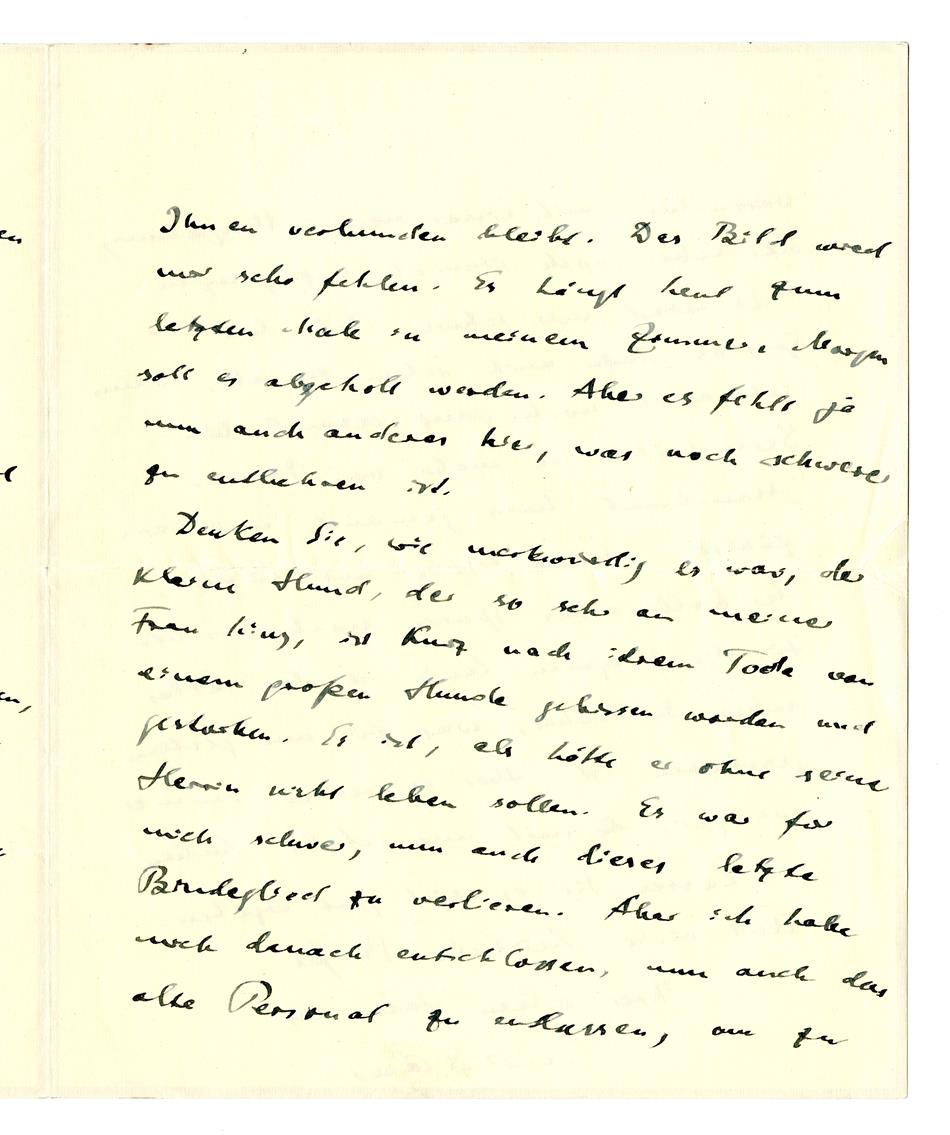 Ihnen verbunden bleibt. Das Bild wird
mir sehr fehlen. Es hängt heut zum
letzten Male in meinem Zimmer, Morgen
soll es abgeholt werden. Aber es fehlt ja
nun auch anderes hier, was noch schwerer
zu entbehren ist.
Denken Sie, wie merkwürdig es war, der
kleine Hund, der so sehr an meiner
Frau hing, ist kurz nach ihrem Tode von
einem großen Hunde gebissen worden und
gestorben. Es ist, als hätte er ohne seine
Herrin nicht leben sollen. Es war für
mich schwer, nun auch dieses letzte
Bindeglied zu verlieren. Aber ich habe
mich danach entschlossen, nun auch das
alte Personal zu entlassen, um zu